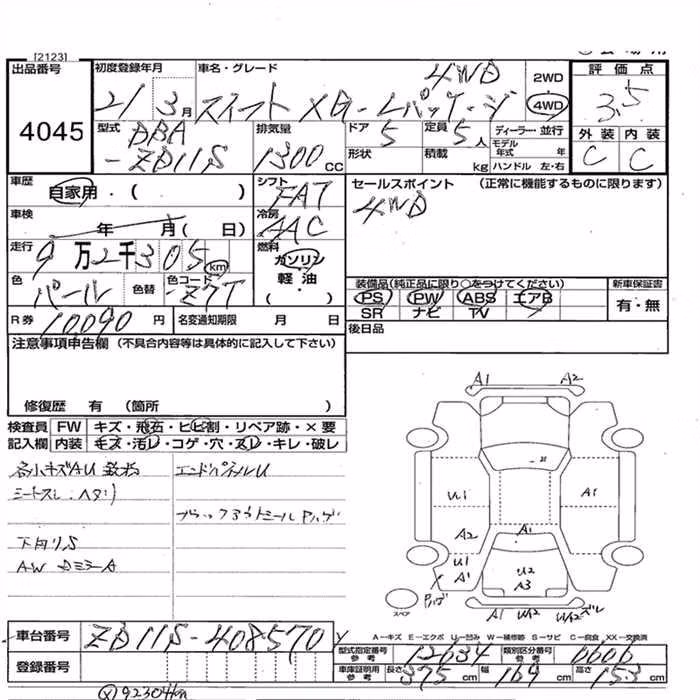 [2123]
出品番号
4045
初度登録年月
21 3月
車名・グレード
スイフト XG-Lパッケージ
4WD
2WD
4WD
評価点
3.5
外装 内装
C C
型式
DBA
-ZD11S
排気量
1300 CC
ドア
5
定員
5人
形状
積載
kg
ディーラー・並行
モデル年式 年
ハンドル 左・右
車歴
自家用・( )
シフト
FAT
車検
年 月( 日)
冷房
AAC
走行
9万2千305 km
燃料
ガソリン
軽油
( )
色
パール
色替
色コード
-Z7T
R券 10090円
名変通知期限 月 日
セールスポイント (正常に機能するものに限ります)
4WD
装備品(純正品に限り○をつけてください)
PS PW ABS エアB
SR ナビ TV
新車保証書
有・無
後日品
注意事項申告欄 (不具合内容等は具体的に記入して下さい)
修復歴 有 (箇所 )
検査員 FW キズ・飛石・ヒビ割・リペア跡・×要
記入欄 内装 キズ・汚レ・コゲ・穴・スレ・キレ・破レ
エンドパネルU
下回りS
A1 A2
U1 A1
A2 A1
U1
A1
U2
A3
スペア
A1
A-キズ E-エクボ U-凹み W-補修跡 S-サビ C-腐食 XX-交換済
車台番号 ZD11S-408570
登録番号
型式指定番号 参考 12634
類別区分番号 参考 0606
車庫証明用 参考 長さ 375cm 幅 169cm 高さ 153cm
92304km